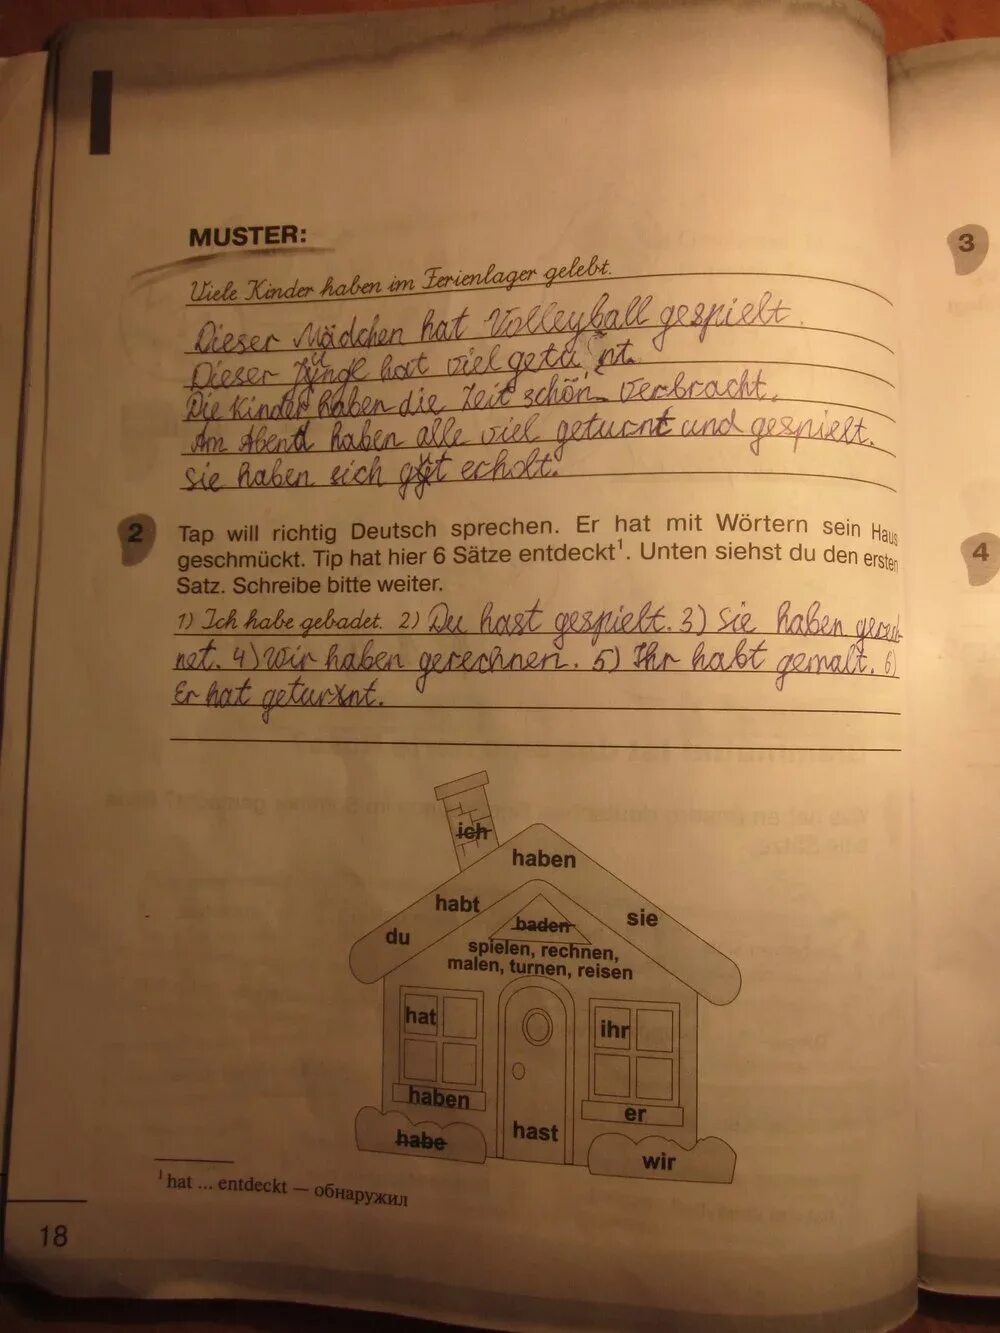 MUSTER:
Viele Kinder haben im Ferienlager gelebt.
Dieser Mädchen hat Volleyball gespielt.
Dieser Junge hat viel geturnt.
Die Kinder haben die Zeit schön verbracht.
Am Abend haben alle viel geturnt und gespielt.
Sie haben sich gut erholt.
3
2 Tap will richtig Deutsch sprechen. Er hat mit Wörtern sein Haus
geschmückt. Tip hat hier 6 Sätze entdeckt¹. Unten siehst du den ersten
Satz. Schreibe bitte weiter.
4
1) Ich habe gebadet. 2) Du hast gespielt. 3) Sie haben gerech-
net. 4) Wir haben gerechnen. 5) Ihr habt gemalt. 6)
Er hat geturnt.
ich
haben
habt
sie
du
baden
spielen, rechnen,
malen, turnen, reisen
hat
ihr
haben
er
habe
hast
wir
¹ hat ... entdeckt — обнаружил
18